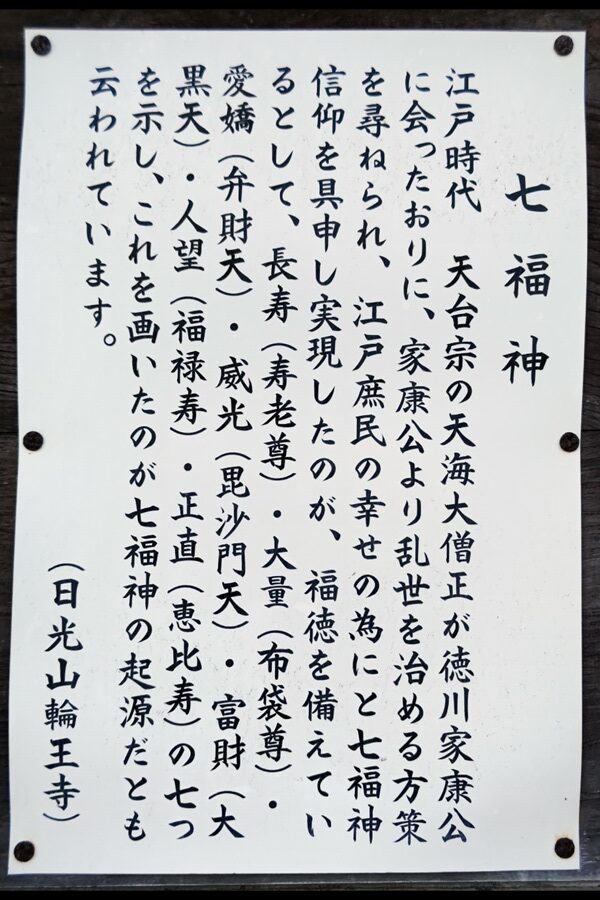 七福神
江戸時代　天台宗の天海大僧正が徳川家康公
に会ったおりに、家康公より乱世を治める方策
を尋ねられ、江戸庶民の幸せの為にと七福神
信仰を具申し実現したのが、福徳を備えてい
るとして、長寿（寿老尊）・大量（布袋尊）・
愛嬌（弁財天）・威光（毘沙門天）・富財（大
黒天）・人望（福禄寿）・正直（恵比寿）の七つ
を示し、これを画いたのが七福神の起源だとも
云われています。
（日光山輪王寺）